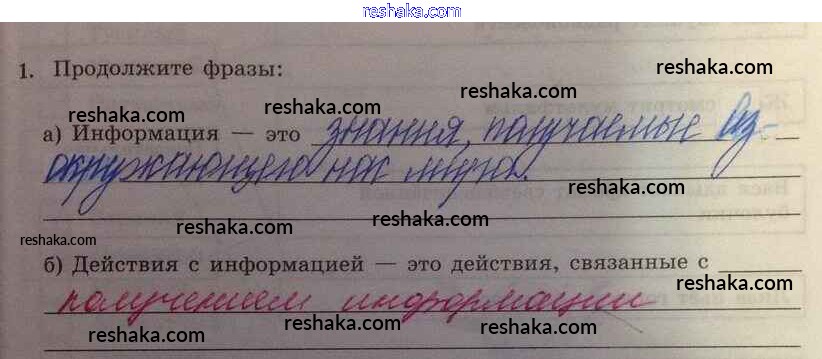 reshaka.com
1. Продолжите фразы:
reshaka.com
reshaka.com
reshaka.com
reshaka.com
а) Информация — это знания, получаемые из
reshaka.com
окружающего нас мира.
reshaka.com
reshaka.com
reshaka.com
reshaka.com
б) Действия с информацией — это действия, связанные с
reshaka.com
получением информации
reshaka.com
reshaka.com
reshaka.com
reshaka.com